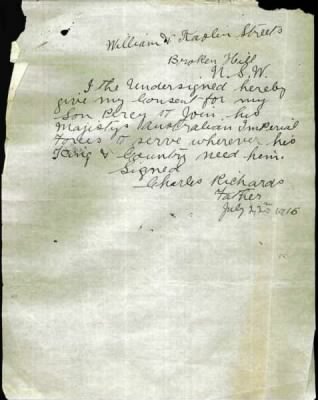 William & Kaolin Streets
Broken Hill
N.S.W.
I the Undersigned hereby
give my Consent for my
Son Percy to Join his
Majestys Australian Imperial
Forces to serve wherever his
King & Country need him.
Signed
Charles Richards
Father
July 1915